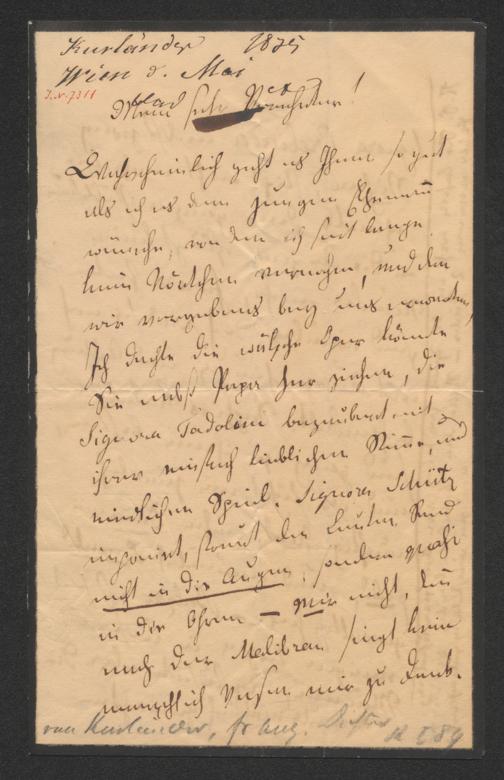 Kurländer 1835
Wien d. Mai
I.N. 7311
Mein sehr Verehrter!
Wahrscheinlich geht es Ihnen so gut
als ich es dem jungen Ehemann
wünsche, von dem ich seit lange
kein Wörtchen vernahm, und den
wir vergebens bey uns erwarten,
Ich dachte die wälsche Oper könnte
Sie nebst Papa her ziehen, die
Signora Tadolini bezaubert mit
ihrer einfach lieblichen Stimme, und
niedlichen Spiel. Signora Schütz
imponirt, streut den Leuten Sand
nicht in die Augen, sondern
in die Ohren — Mir nicht, denn
nach der Malibran singt kein
menschlich Wesen mir zu Dank.
von Kurländer, fr Aug.